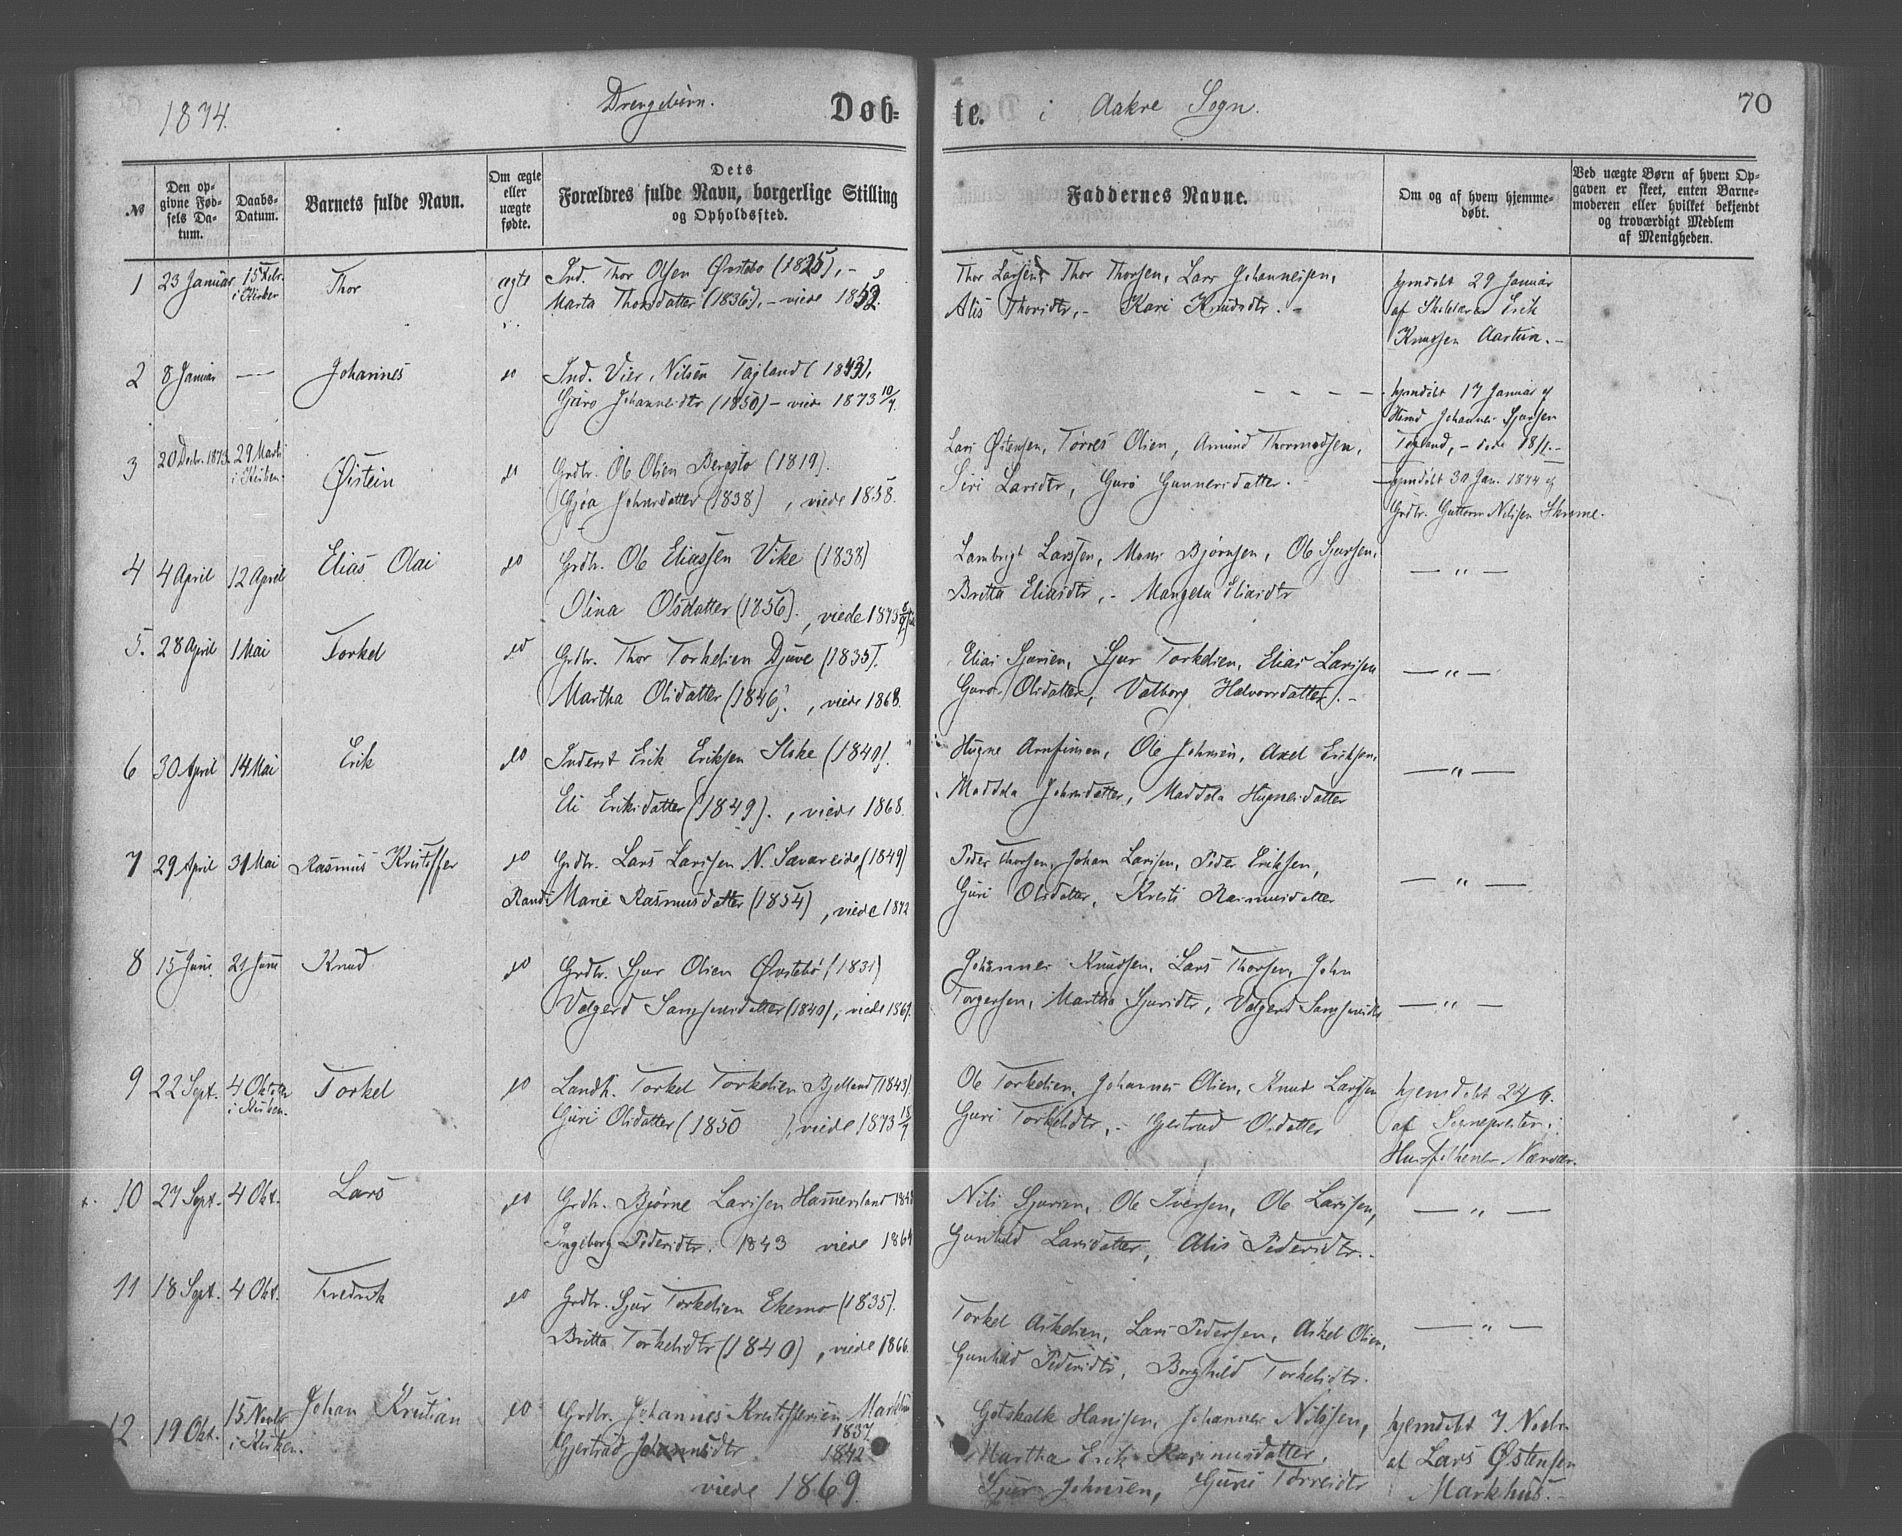 1874. Drengebørn. Døb= te. i Aakre Sogn. 70
№
Den op-
givne Fød-
sels Da-
tum.
Daabs-
Datum.
Barnets fulde Navn.
Om ægte
eller
uægte
fødte.
Dets
Forældres fulde Navn, borgerlige Stilling
og Opholdssted.
Faddernes Navne.
Om og af hvem hjemme-
døbt.
Ved uægte Børn af hvem Op-
gaven er skeet, enten Barne-
moderen eller hvilket bekjendt
og troværdigt Medlem
af Menigheden.
1 23 Januar 15 Febr.
i Kirken
Thor
ægte
Ind. Thor Olsen Øvstebø (1825), -
Marta Thorsdatter (1836), - viede 1852.
Thor Larsen, Thor Thorsen, Lars Johannesen,
Alis Thorsdtr, - Kari Knudsdtr. -
hjmdøbt 29 Januar
af Skolelærer Erik
Knudsen Aartun. -
2 8 Januar — Johannes do
Ind. Nilsen Tagland (1843),
Guro Johannesdtr (1850) - viede 1873 10/7.
hjmdøbt 17 Januar af
Johannes Sjursen
Tagland, - døde 18/1. -
3 20 Decbr. 1873. 29 Marts
i Kirken.
Øistein do
Grdbr. Ole Olsen Bergstø (1819).
Gjøa Johnsdatter (1838), viede 1858.
Lars Østensen, Tørres Olsen, Amund Thormodsen,
Siri Larsdtr, Guro Gunnersdatter. -
hjemdøbt 30 Jan. 1874 af
Grdbr. Guttorm Nilsen Skromme.
4 4 April 12 April Elias Olai do
Grdbr. Ole Eliassen Vike (1838)
Olina Olsdatter (1856)., viede 1873
Lambrigt Larssen, Mons Bjørnsen, Ole Sjursen,
Britta Eliasdtr, - Mangela Eliasdtr
— " —
5. 28 April 1 Mai Torkel do
Grdbr. Thor Torkelsen Djuve (1835).
Martha Olsdatter (1846)., viede 1868.
Elias Sjursen, Sjur Torkelsen, Elias Larssen
Guro Olsdatter, Valborg Halvorsdatter. -
— " —
6 30 April 14 Mai Erik do
Inderst Erik Eriksen (1840).
Eli Eriksdatter (1849)., viede 1868.
Hugne Arnfinsen, Ole Johnsen, Axel Eriksen,
Maddela Johnsdatter, Maddela Hugnesdatter
— " —
7 29 April 31 Mai Rasmus Kristoffer do
Grdbr. Lars Larssen N. Sævareide (1849)
Randi Marie Rasmusdatter (1854), viede 1872
Peder Thorsen, Johan Larssen, Peder Eriksen,
Guri Olsdatter, Kristi Rasmusdatter
— " —
8 15 Juni 21 Juni Knud do
Grdbr. Sjur Olsen Øvstebø (1831)
Valgerd Samsonsdatter (1840), viede
Johannes Knudsen, Lars Thorsen, John
Torgersen, Martha Sjursdtr, Valgerd Samsonsdtr
— " —
9 22 Sept. 4 Oktober
i Kirken.
Torkel do
Landh. Torkel Torkelsen Bjelland (1843).
Guri Olsdatter (1850 ), viede 1873
Ole Torkelsen, Johannes Olsen, Knud Larssen
Guri Torkelsdtr, - Gjertrud Olsdatter
hjemdøbt 24/9.
af Sognepresten i
10 27 Sept. 4 Okt. Lars do
Grdbr. Bjørne Larssen Hamersland
Ingeborg Pedersdtr. 1843 viede 1864
Nils Sjursen, Ole Iversen, Ole Larssen,
Gunhild Larsdatter, Alis Pedersdtr. -
— " —
11 18 Sept. 4 Okt. Fredrik do
Grdbr. Sjur Torkelsen Ekemo (1835).
Britta Torkelsdtr (1840), viede 1866.
Torkel Askelsen, Lars Pedersen, Askel Olsen,
Gunhild Pedersdtr, Borghild Torkelsdtr.
— " —
12 19 Okt. 15 Novbr
i Kirken.
Johan Kristian do
Grdbr. Johannes Kristoffersen Markhus
1837
Gjertrud Johannesdtr 1842
viede 1869.
Gotskalk Hanssen, Johannes Nilssen,
Martha Rasmusdatter.
Sjur Johnsen, Guri Tørresdtr
hjemdøbt 7 Novbr
af Lars Østensen
Markhus. -